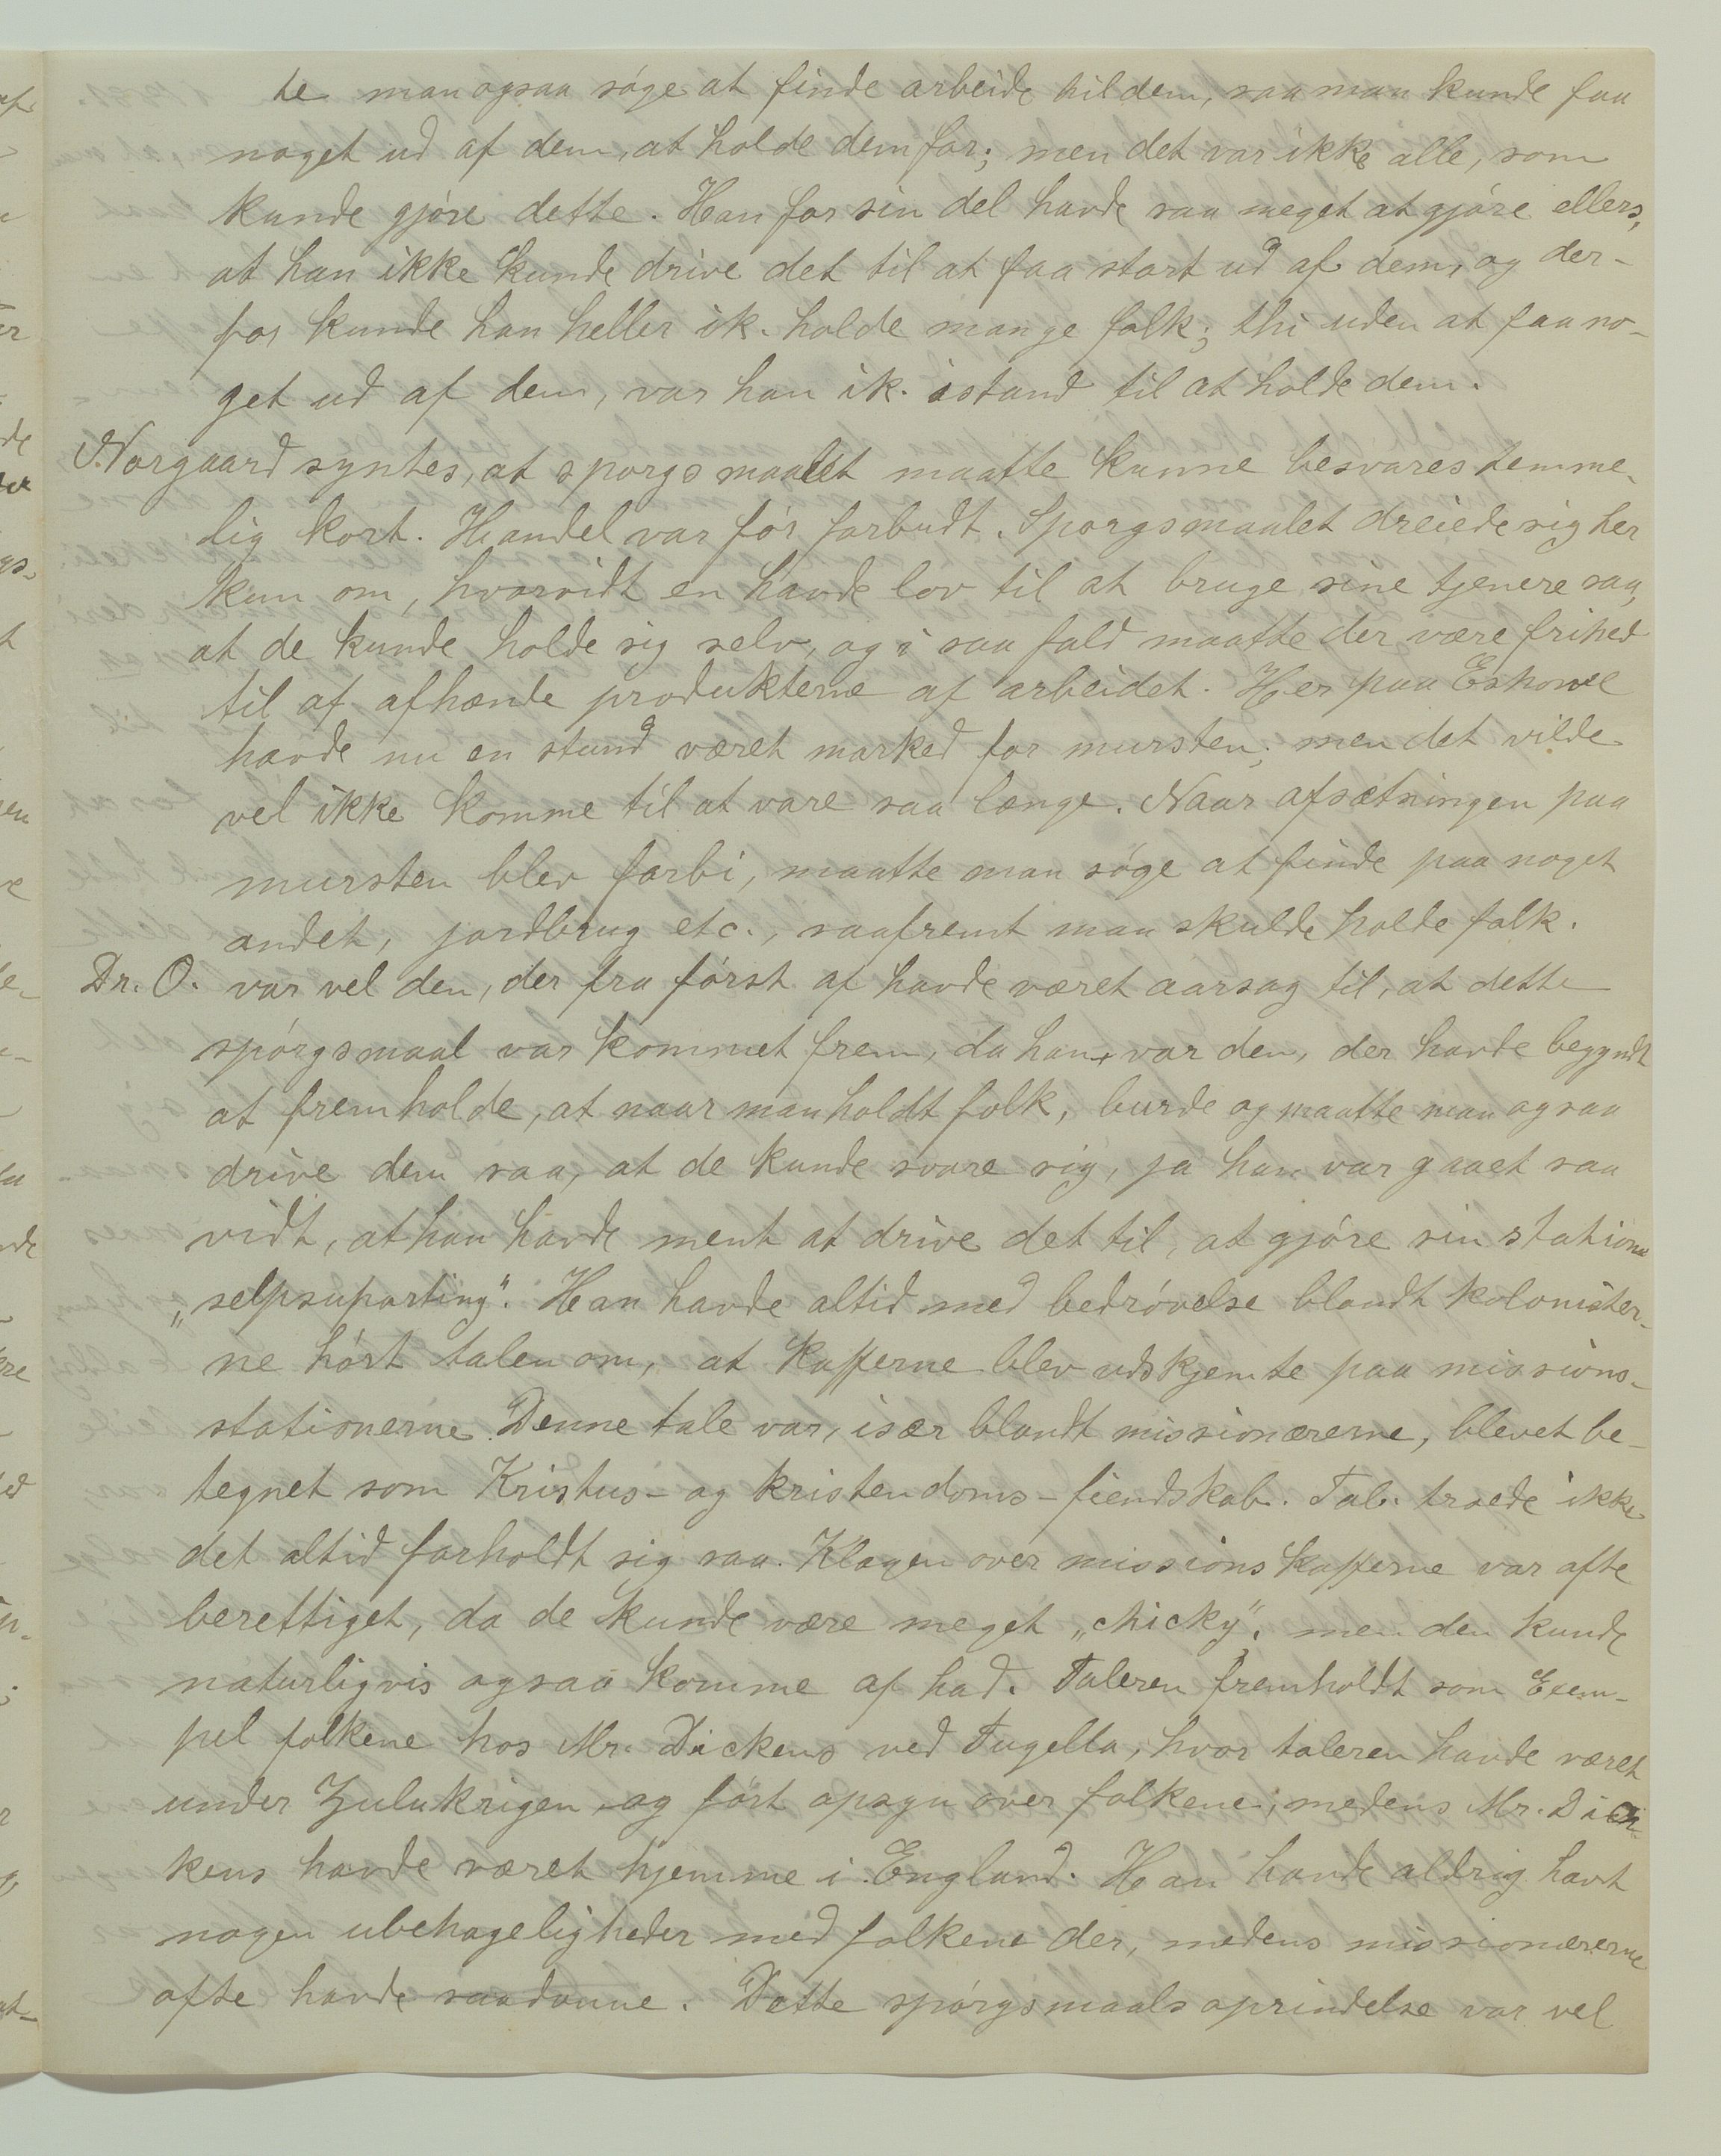 te man ogsaa søge at finde arbeide til dem, saa man kunde faa
noget ud af dem, at holde dem for; men det var ikke alle, som
kunde gjøre dette. Han for sin del havde saa meget at gjøre ellers,
at han ikke kunde drive det til at faa stort ud af dem, og der-
for kunde han heller ik. holde mange folk; thi uden at faa no-
get ud af dem, var han ik. istand til at holde dem.
Norgaard syntes, at sporgsmaalet maatte kunne besvares temme-
lig kort. Handel var før forbudt. Sporgsmaalet dreiede sig her
kun om, hvorvidt en havde lov til at bruge sine tjenere saa,
at de kunde holde sig selv, og i saa fald maatte der være frihed
til af afhænde produkterne af arbeidet. Her paa Eshowe
havde nu en stund været marked for mursten; men det vilde
vel ikke komme til at vare saa længe. Naar afsætningen paa
mursten blev forbi, maatte man søge at finde paa noget
andet, jordbrug etc., saafremt man skulde holde folk.
Dr. O. var vel den, der fra først af havde været aarsag til, at dette
spørgsmaal var kommet frem, da han var den, der havde begyndt
at fremholde, at naar man holdt folk, burde og maatte man ogsaa
drive dem saa, at de kunde svare sig, ja han var gaaet saa
vidt, at han havde ment at drive det til, at gjøre sin station
„selfsuporting". Han havde altid med bedrøvelse blandt kolonister-
ne hørt talen om, at kafferne blev udskjemte paa missions-
stationerne. Denne tale var, især blandt missionærerne, blevet be-
tegnet som Kristus- og kristendoms-fiendskab. Tal. troede ikke
det altid forholdt sig saa. Klagen over missionskafferne var ofte
berettiget, da de kunde være meget „chicky", men den kunde
naturligvis ogsaa komme af had. Taleren fremholdt som Exem-
pel folkene hos Mr. Dickens ved Tugella, hvor taleren havde været
under Zulukrigen og ført opsyn over folkene, medens Mr. Dic-
kens havde været hjemme i England. Han havde aldrig havt
nogen ubehageligheder med folkene der, medens missionærerne
ofte havde saadanne. Dette spørgsmaals oprindelse var vel